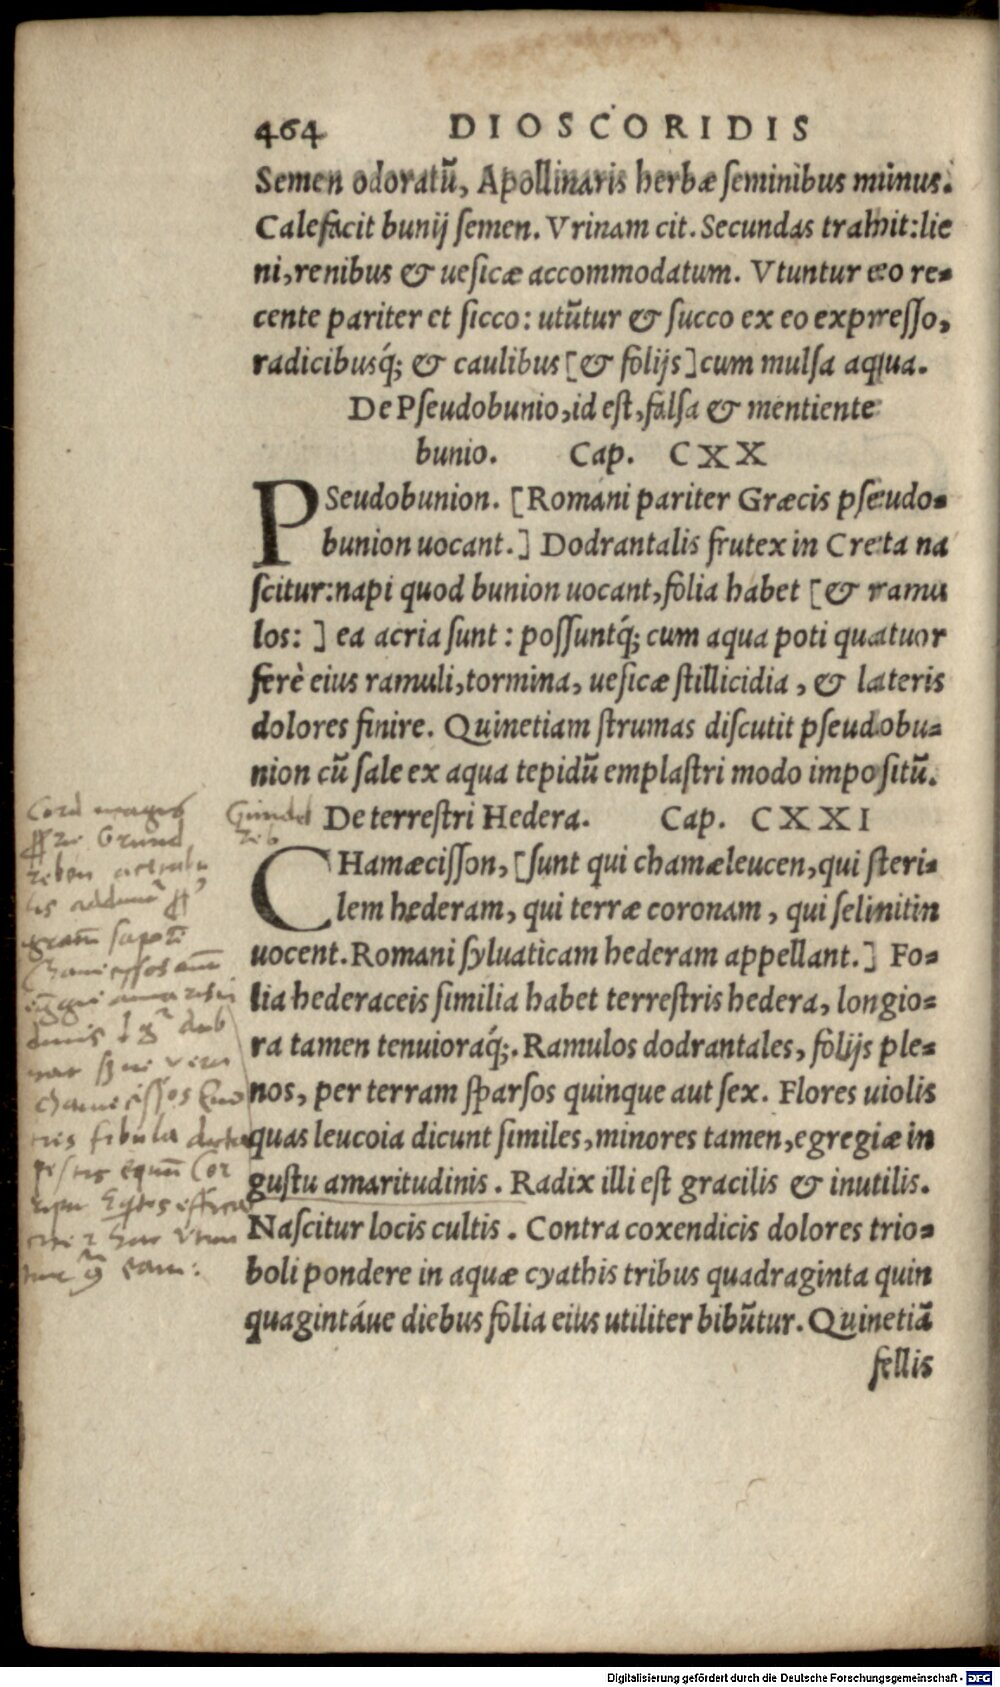 464 DIOSCORIDIS
Semen odoratũ, Apollinaris herbæ ſeminibus minus.
Calefacit bunij ſemen. Vrinam cit. Secundas trahit: lie
ni, renibus & ueſicæ accommodatum. Vtuntur eo re⸗
cente pariter et ſicco: utũtur & ſucco ex eo expreſſo,
radicibusq́; & caulibus [& folijs] cum mulſa aqua.
De Pſeudobunio, id eſt, falſa & mentiente
bunio. Cap. CXX
PSeudobunion. [Romani pariter Græcis pſeudo⸗
bunion uocant.] Dodrantalis frutex in Creta na
ſcitur: napi quod bunion uocant, folia habet [& ramu
los:] ea acria ſunt: poſſuntq́; cum aqua poti quatuor
ferè eius ramuli, tormina, ueſicæ ſtillicidia, & lateris
dolores finire. Quinetiam ſtrumas diſcutit pſeudobu⸗
nion cũ ſale ex aqua tepidũ emplaſtri modo impoſitũ.
Gundel
reb
De terreſtri Hedera. Cap. CXXI
CHamæciſſon, [ſunt qui chamæleucen, qui ſteri⸗
lem hederam, qui terræ coronam, qui ſelinitin
uocent. Romani ſyluaticam hederam appellant.] Fo⸗
lia hederaceis ſimilia habet terreſtris hedera, longio⸗
ra tamen tenuioraq́;. Ramulos dodrantales, folijs ple⸗
nos, per terram ſparſos quinque aut ſex. Flores uiolis
quas leucoia dicunt ſimiles, minores tamen, egregiæ in
guſtu amaritudinis. Radix illi eſt gracilis & inutilis.
Naſcitur locis cultis. Contra coxendicis dolores trio⸗
boli pondere in aquæ cyathis tribus quadraginta quin
quagintáue diebus folia eius utiliter bibũtur. Quinetiã
fellis
Digitalisierung gefördert durch die Deutsche Forschungsgemeinschaft - DFG